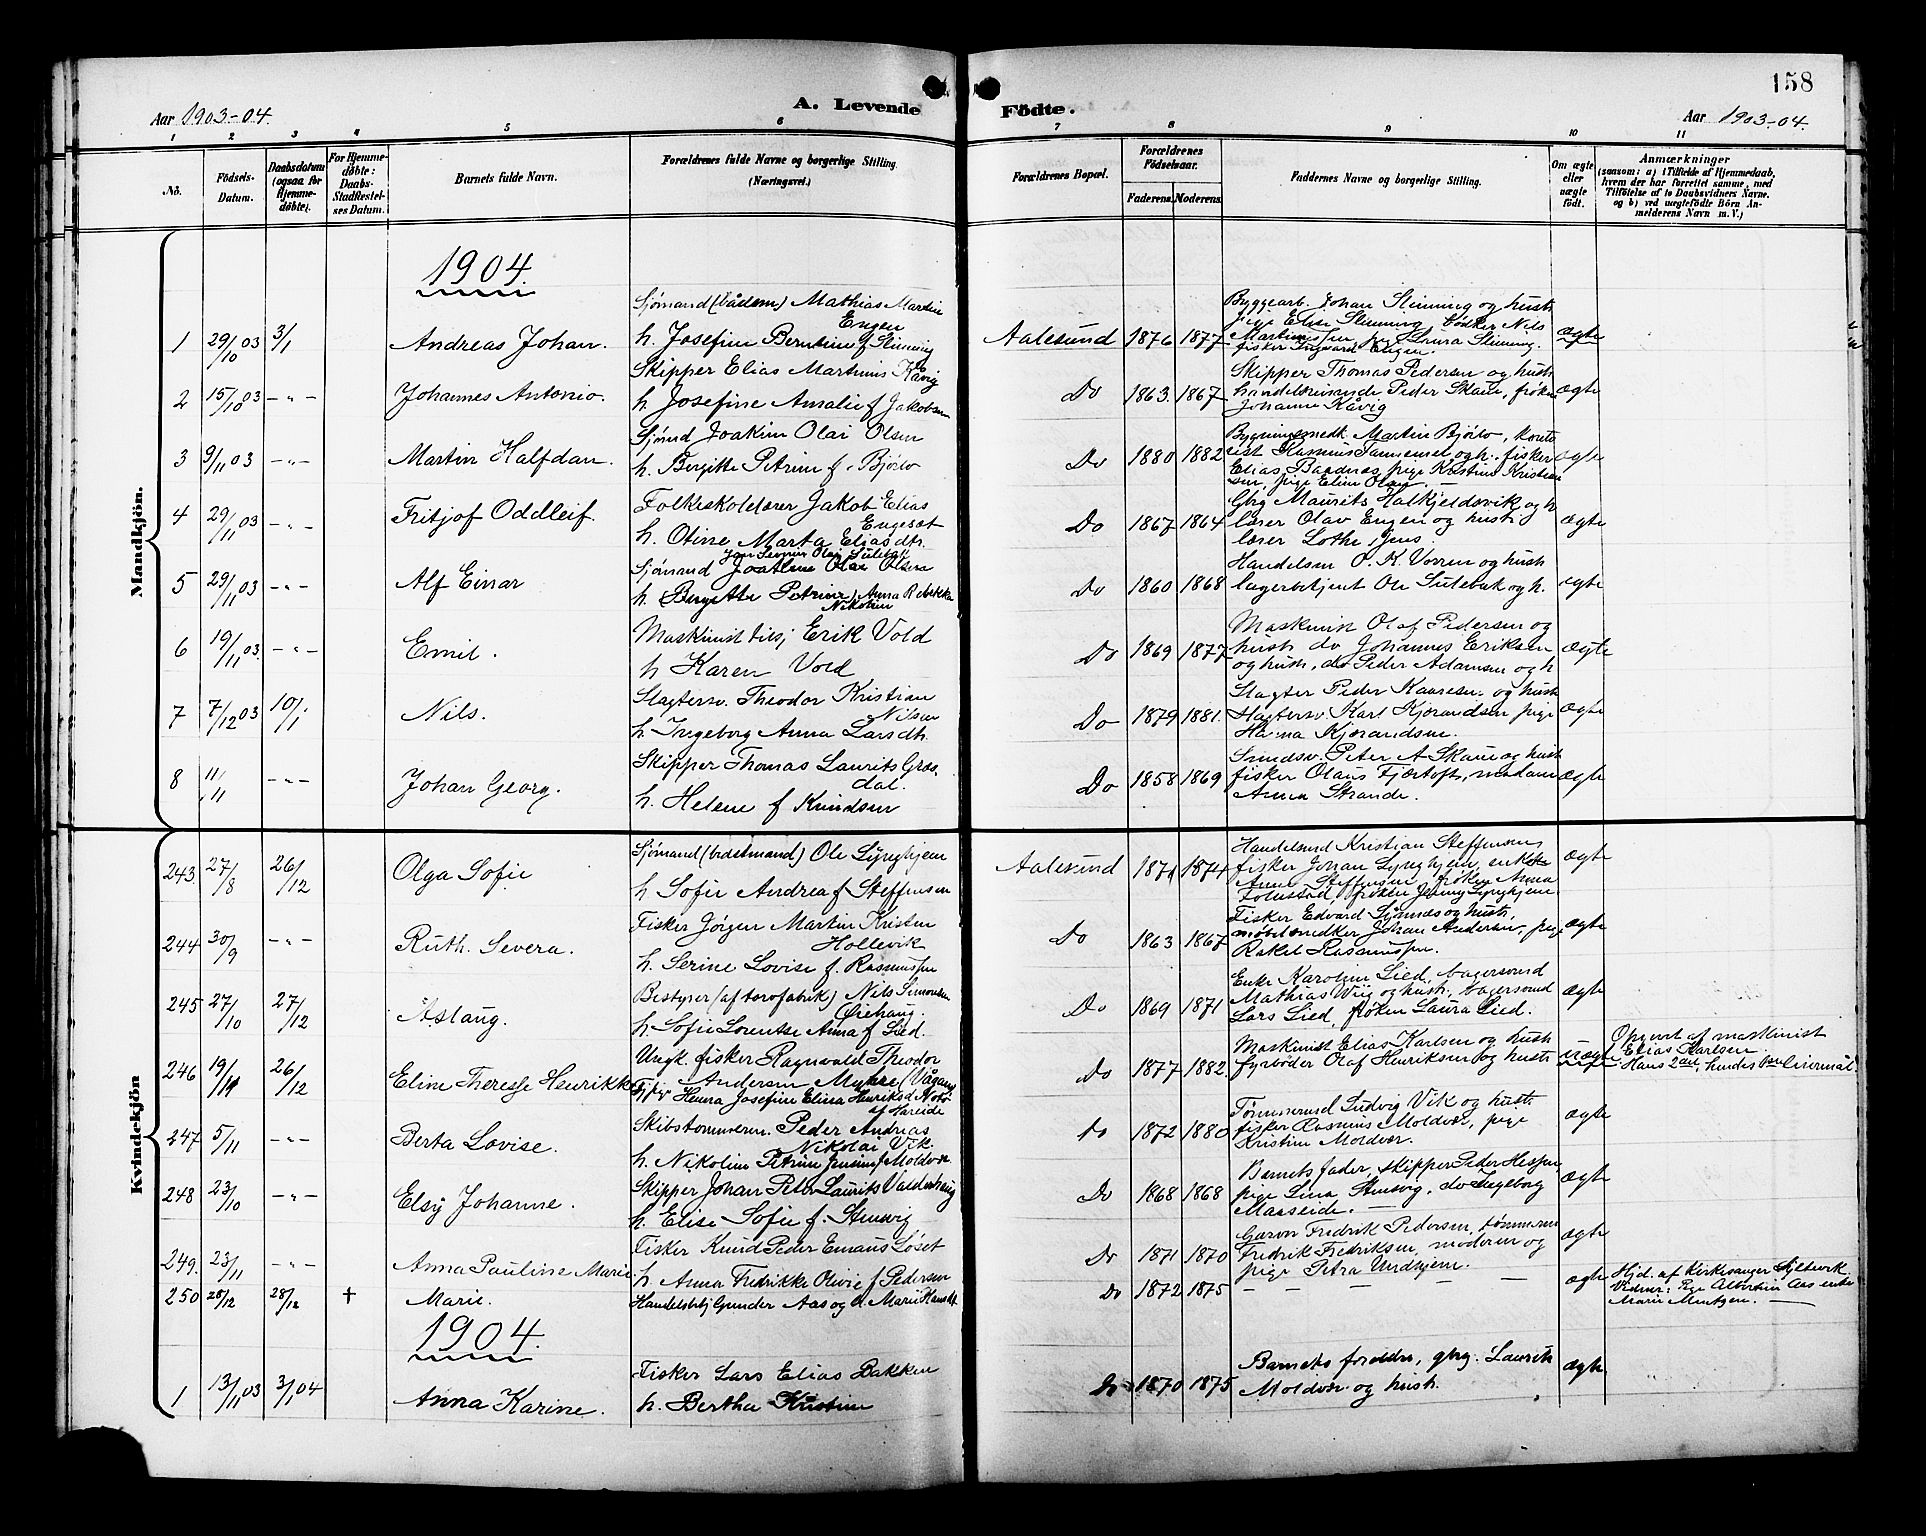 158
Aar 1903-04.
A. Levende Födte.
Aar 1903-04.
1 2 3 4 5 6 7 8 9 10 11
No.
Födsels-Datum.
Daabsdatum (ogsaa for Hjemme-döbte).
For Hjemme-döbte: Daabs-Stadfestel-ses Datum.
Barnets fulde Navn.
Forældrenes fulde Navne og borgerlige Stilling. (Næringsvei.)
Forældrenes Bopæl.
Forældrenes Födselsaar.
Faderens. Moderens.
Faddernes Navne og borgerlige Stilling.
Om ægte eller uægte födt.
Anmærkninger
(saasom: a) i Tilfælde af Hjemmedaab, hvem der har forrettet samme, med Tilföielse af to Daabsvidners Navne. og b) ved uægtefödte Börn An-melderens Navn m. V.)
Mandkjön.
1904.
1 29/10 03 3/1 Andreas Johan. Sjömand (bådsm) Mathias Martin Engen h. Josefine Berntine f Slinning Aalesund 1876 1877 Byggearb. Johan Slinning og hust. pige Elise Slinning, bödker Nils pige Laura Slinning. fisker Ingvard Engen. ægte
2 15/10 03 -"- Johannes Antonio. Skipper Elias Martinus Kåvig h. Josefine Amalie f Jakobsen Do 1863. 1867 Skipper Thomas Pedersen og hust. handelsreisende Peder Skaue, fröken Johanne Kåvig ægte
3 9/11 03 -"- Martin Halfdan. Sjömd Joakim Olai Olsen h. Bergitte Petrine f. Bjørlo Do 1880 1882 Bygningssnedk. Martin Bjørlo, Rasmus og h. fisker Elias pige Kristine Kristian sen, pige Eline Olsen. ægte
4 29/11 03 -"- Fritjof Oddleif. Folkeskolelærer Jakob Elias Engeset h. Otine Marta Eliasdtr. Do 1867 1864 Gbrg Maurits Halkjeldsvik og h lærer Olav Engen og hust. lærer Lothe, Jens. ægte
5 29/11 03 -"- Alf Einar Sjömand Olai Sulebak Joakim Olai Olsen h. Bergitte Petrine) Anna Rebekka Nikoline Do 1860 1868 Handelsm O. K. Vorren og hust. lagerbetjent Ole Sulebak og h. ægte
6 19/11 03. -"- Emil. Maskinist Erik Vold h Karen Vold Do 1869 1877 Maskinist Olaf Pedersen og hust. do Johannes Eriksen og hust, do Peder Adamsen og h ægte
7 7/12 03 10/1 Nils. Slagtersv. Theodor Kristian Nilsen h. Ingeborg Anna Larsdtr. Do 1879 1881. Slagter Peder Kaaresen og hust. Slagtersv. Karl Kjørandsen pige Hanna Kjørandsen. ægte
8 11/11 -"- Johan Georg. Skipper Thomas Laurits Græsdal. h. Helene f Knudsen Do 1858 1869 Smedsv. Peter A Skaue og hust. fisker Olaus Fjærtoft, madam Anna Strande. ægte
Kvindekjön
243. 27/8 26/12 Olga Sofie Sjömand (bådsmand) Ole Lynghjem h Sofie Andrea f Steffensen Aalesund 1871 1874 Handelsmd Kristian Steffensen fisker Johan Lynghjem, enke Anna Steffensen, fröken Anna fröken Jenny Lynghjem. ægte
244 30/9 -"- Ruth Severa. Fisker Jørgen Martin Kristen Hollevik h. Serine Lovise f. Rasmussen Do 1863 1867 Fisker Edvard og hust, möbelsnedker Johan Andersen, pige Rakel Rasmussen. ægte
245 27/10 27/12 Aslaug. Bestyrer (af tarafabrik) Nils Simonsen Ørehaug. h. Sofie Lorentse Anna f Lied. Do 1869 1871 Enke Karoline Lied, bagersvend Mathias Wiig og hust. bagersvend Lars Lied, fröken Laura Lied. ægte
246 19/11 26/12 Eline Therese Henrikke Ungk. fisker Ragnvald Theodor Andersen Myhre (Vågan) Henra Josefine Elina Henriksd af Hareide Do 1877 1882. Maskinist Elias Karlsen og hust fyrböder Olaf Henriksen og hust. uægte Opgivet af maskinist Elias Karlsen Hans 2den, hendes 1ste Leiermål.
247 5/11 -"- Berta Lovise. Skibstömmerm. Peder Andreas Nikolai Vik. h. Nikoline Petrine f Moldvær. Do 1872 1880 Tømmermd Ludvig Vik og hust. fisker Rasmus Moldvær, pige Kristine Moldvær. ægte
248 23/10 -"- Elsy Johanne. Skipper Johan Peter Laurits Valderhaug h. Elise Sofie f. Do 1868 1868 Barnets fader, skipper Peder Hessen pige Lina do Ingeborg Maaseide. ægte
249. 23/11 -"- Anna Pauline Marie Fisker Knud Peder Emaus Løset h Anna Fredrikke Olivie f Pedersen Do 1871 1870 Garver Fredrik Pedersen, tömmerm Fredrik Fredriksen, moderen og pige Petra Undhjem. ægte
250 28/12 28/12 † Marie. Handelsbtj Gunder Aas og h. Marie Do 1872 1875 - - - - ægte Hjd. af Kirkesanger Vidner: Pige Albertine Aas enke Marie
1904.
1 13/11 03 3/1 04 Anna Karine. Fisker Lars Elias Bakken h. Bertha Kristine Do 1870 1875 Barnets foreldre, gbrg. Laurits Moldvær og hust. ægte